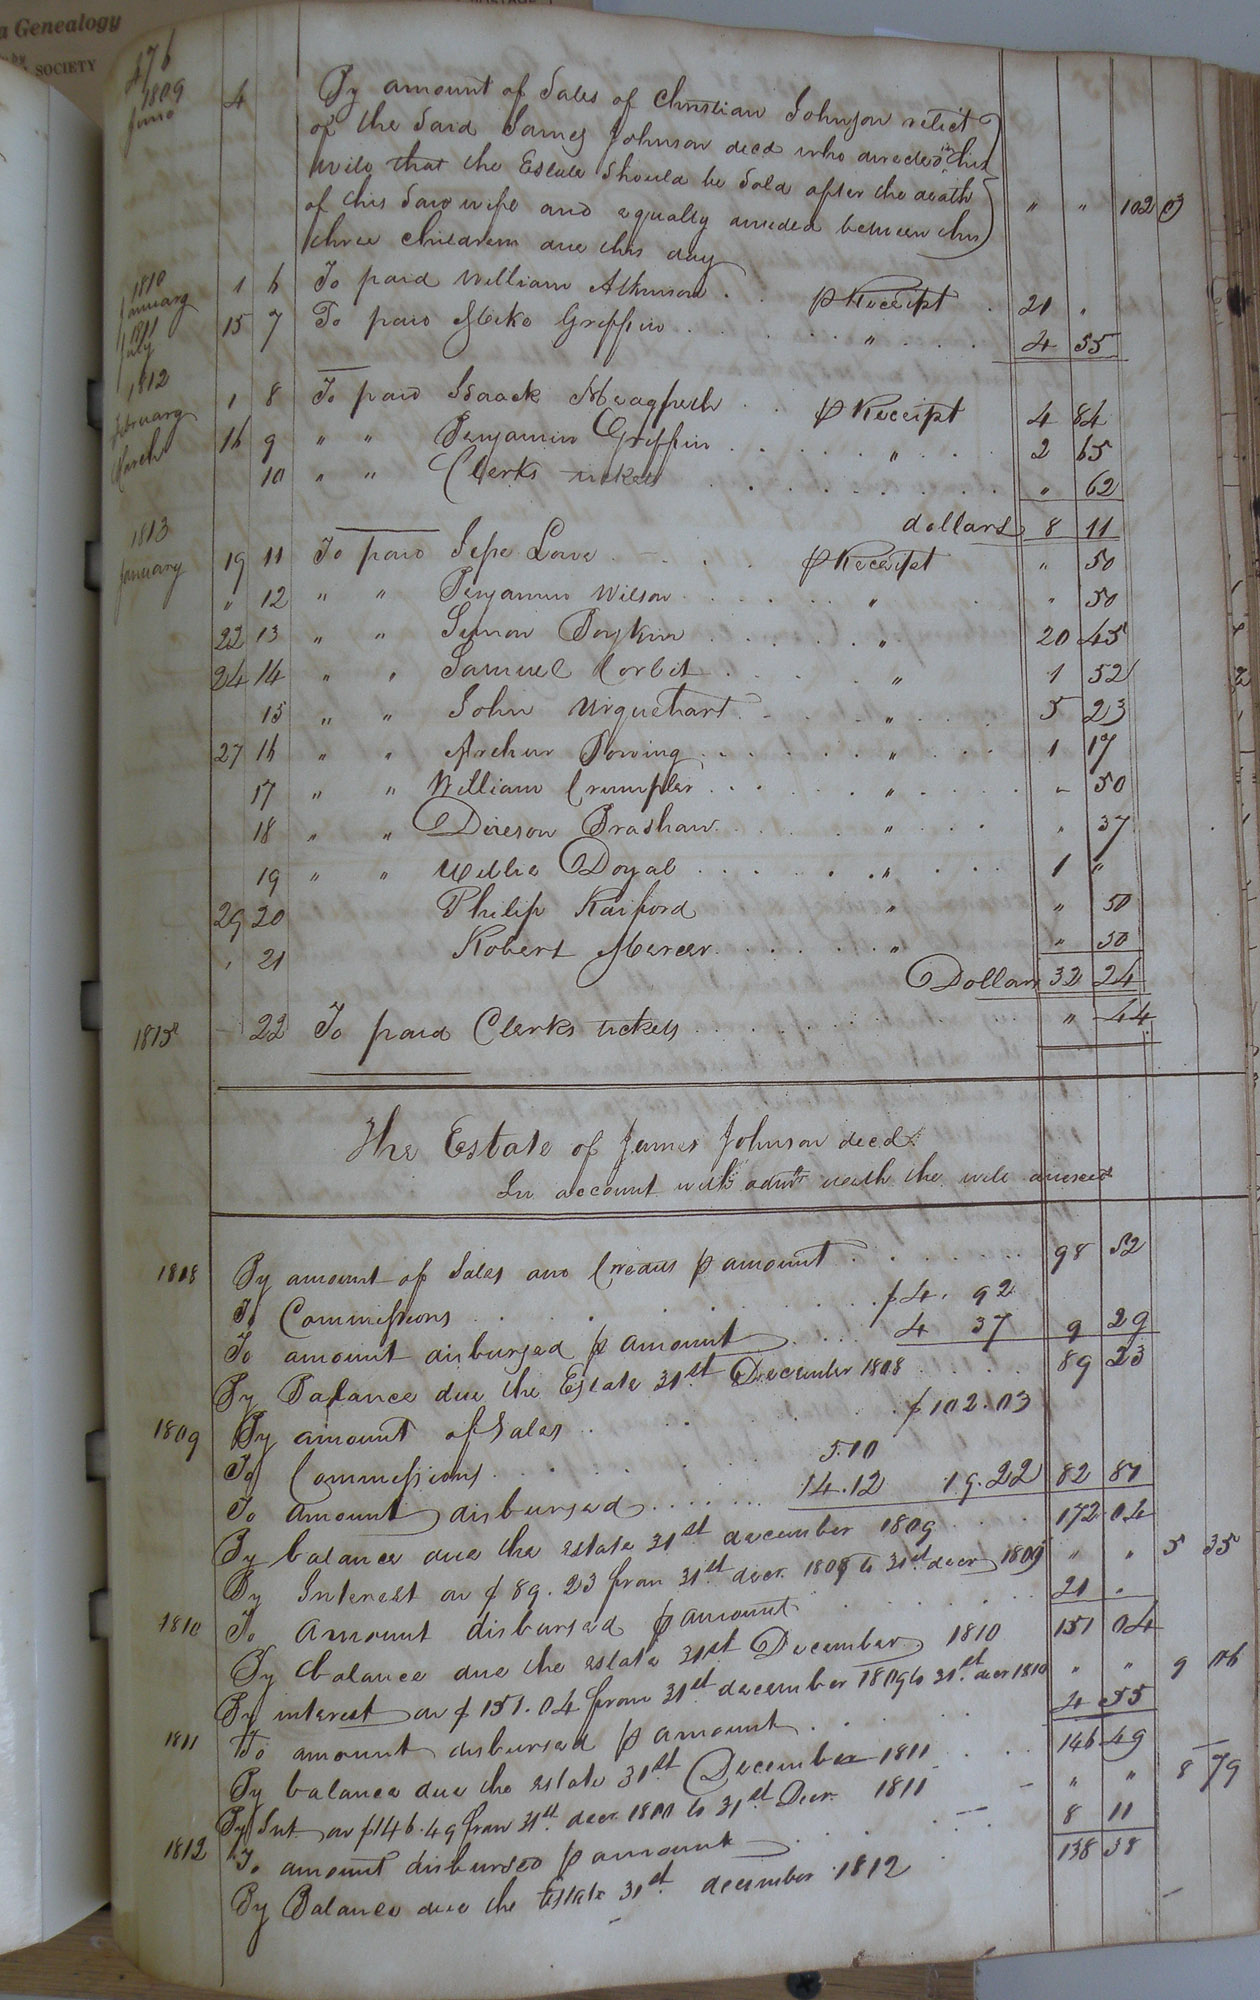 a Genealogy
by
SOCIETY
476
1809
June 4 By amount of Sales of Christian Johnson relict
of the Said James Johnson decd who directed in his
Will that the Estate Should be Sold after the death
of his Said wife and equally divided between his
three children due this day " " 102 03
1810
January 1 6 To paid William Atkinson . . ⅌ Receipt . 21 "
1811
July 15 7 To paid Meke Griffin . . . . " . . . 4 55
1812
February 1 8 To paid Isaack . . ⅌ Receipt 4 84
March 16 9 " " Benjamin Griffin . . . . . " . . 2 65
10 " " Clerks tickets . . . . . . . . " 62
dollars 8 11
1813
January 19 11 To paid Lane . . . ⅌ Receipt " 50
" 12 " " Benjamin Wilson . . . . . " " 50
22 13 " " Simon Boykin . . . . " 20 45
24 14 " " Samuel Corbit . . . . " 1 52
15 " " John Urquehart . . . . " . . 5 23
27 16 " " Arthur Bowing . . . . . " . . 1 17
17 " " William Crumpler . . . . . " . . . " 50
18 " " Bradshaw . . . . " . . . " 37
19 " " Doyal . . . . . " . . . 1 "
29 20 Philip Raiford " " 50
" 21 Robert Mercer . . . . . " " 50
Dollars 32 24
1815 22 To paid Clerks tickets . . . . . . . . " 44
The Estate of James Johnson decd
In account with admr with the will anexed
1808 By amount of Sales and Credits ⅌ amount . . . . . . 98 52
To Commissions . . . . . . . . . $4. 92
To amount disbursed ⅌ amount . . . 4 37 9 29
By Balance due the Estate 31st December 1808 . . . . 89 23
1809 By amount of Sales . . . . . . . . $102.03
To Commissions . . . . . . . 5.10
To amount disbursed . . . . . . . 14.12 19.22 82 81
By balance due the estate 31st december 1809 . . . 172 04
By Interest on $89.23 from 31st decr. 1808 to 31st decr 1809 " " 5 35
1810 To amount disbursed ⅌ amount . . . . . . . 21 "
By balance due the estate 31st December 1810 151 04
By interest on $151.04 from 31st december 1809 to 31st decr 1810 " " 9 06
1811 To amount disbursed ⅌ amount . . . . . 4 55
By balance due the estate 31st December 1811 . . . 146 49
By Int on $146.49 from 31st decr 1810 to 31st Decr. 1811 " " 8 79
1812 To amount disbursed ⅌ amount . . . . . . 8 11
By Balance due the Estate 31st december 1812 138 38